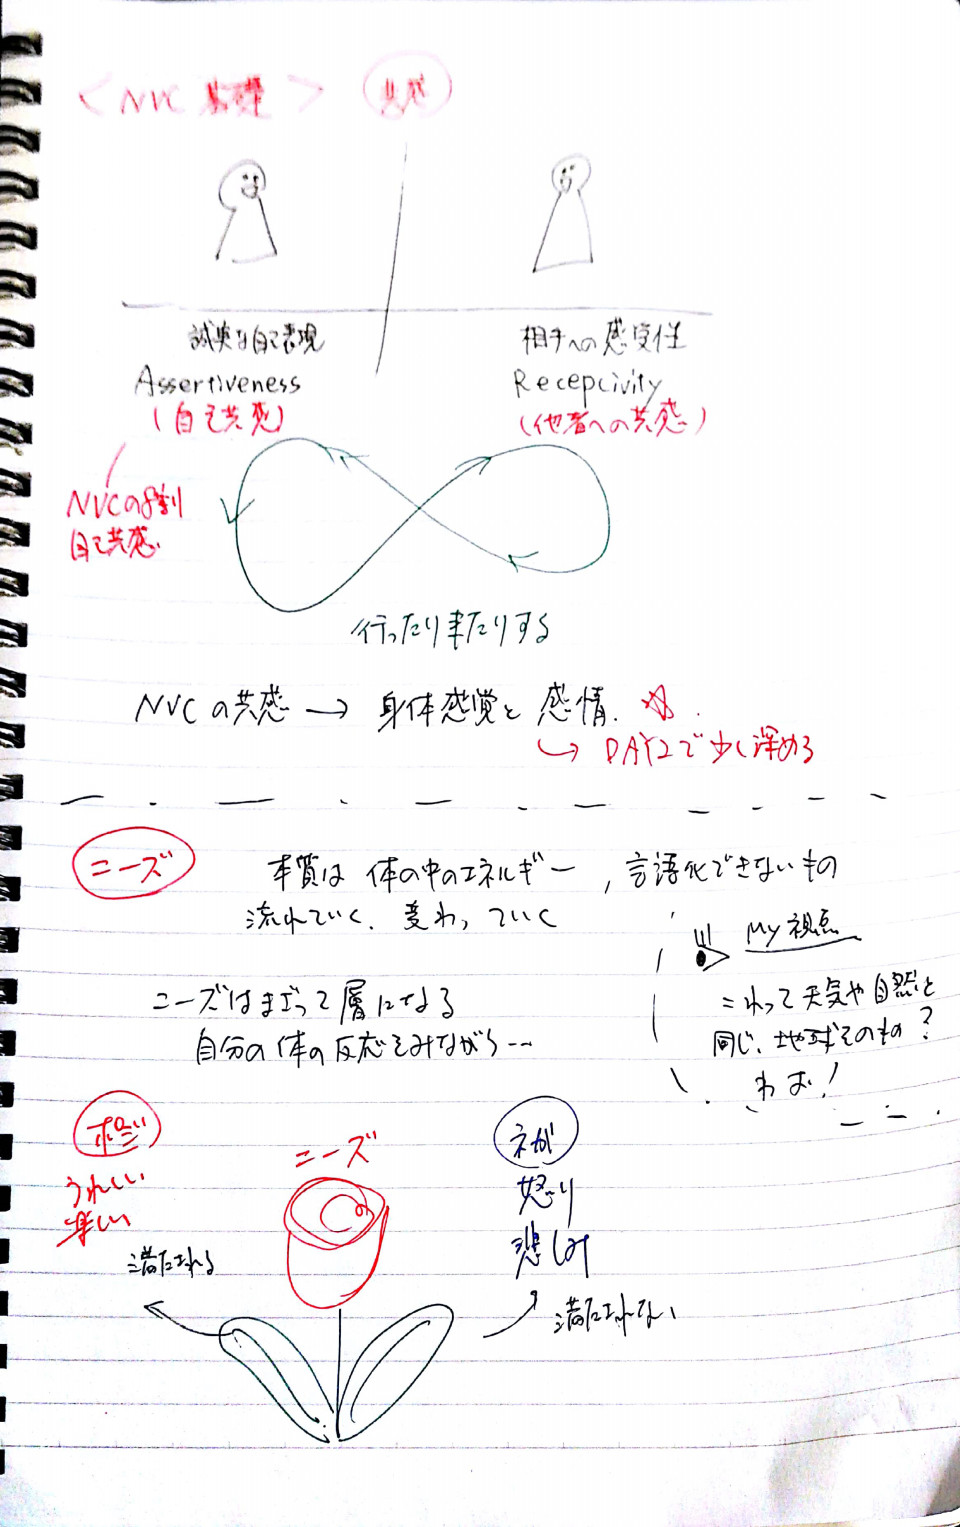 <NVC 基礎> 共感
誠実な自己表現
Assertiveness
(自己共感)
相手への感受性
Recepcivity
(他者への共感)
NVCの8割
自己共感
行ったり来たりする
NVCの共感→身体感覚と感情.
↳DAY2で少し深める
ニーズ
本質は体の中のエネルギー,言語化できないもの
流れていく.変わっていく
My視点
これって天気や自然と
同じ、地球そのもの?
わお!
ニーズはまざって層になる
自分の体の反応をみながら…
ポジ
うれしい
楽しい
満たされる
ニーズ
ネガ
怒り
悲しみ
満たされない